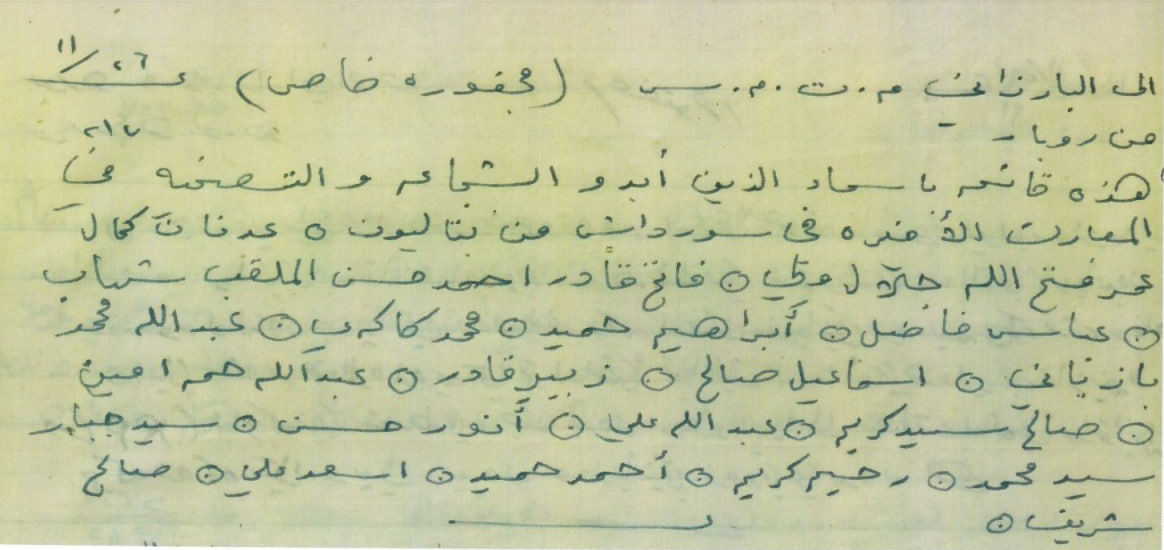 الى البارزاني م.ت.م.س (مجفوره خاص) ٢٦/١١
من روبار ٢١٧
هذه قائمه باسماء الذين أبدو الشجاعه والتضحيه في
المعارك الأخيره في سورداش من بتاليون ٥ عدنان كمال
عمر فتح الله جلال وطي ⊙ فاتح قادر احمد حسن الملقب شهاب
⊙ عباس فاضل ⊙ أبراهيم حميد ⊙ محمد كاكه ⊙ عبدالله محمد
بازياني ⊙ اسماعيل صالح ⊙ زبير قادر ⊙ عبدالله حمه امين
⊙ صالح سيد كريم ⊙ عبدالله علي ⊙ أنور حسن ⊙ سيد جبار
سيد محمد ⊙ رحيم كريم ⊙ أحمد حميد ⊙ اسعد علي ⊙ صالح
شريف ⊙